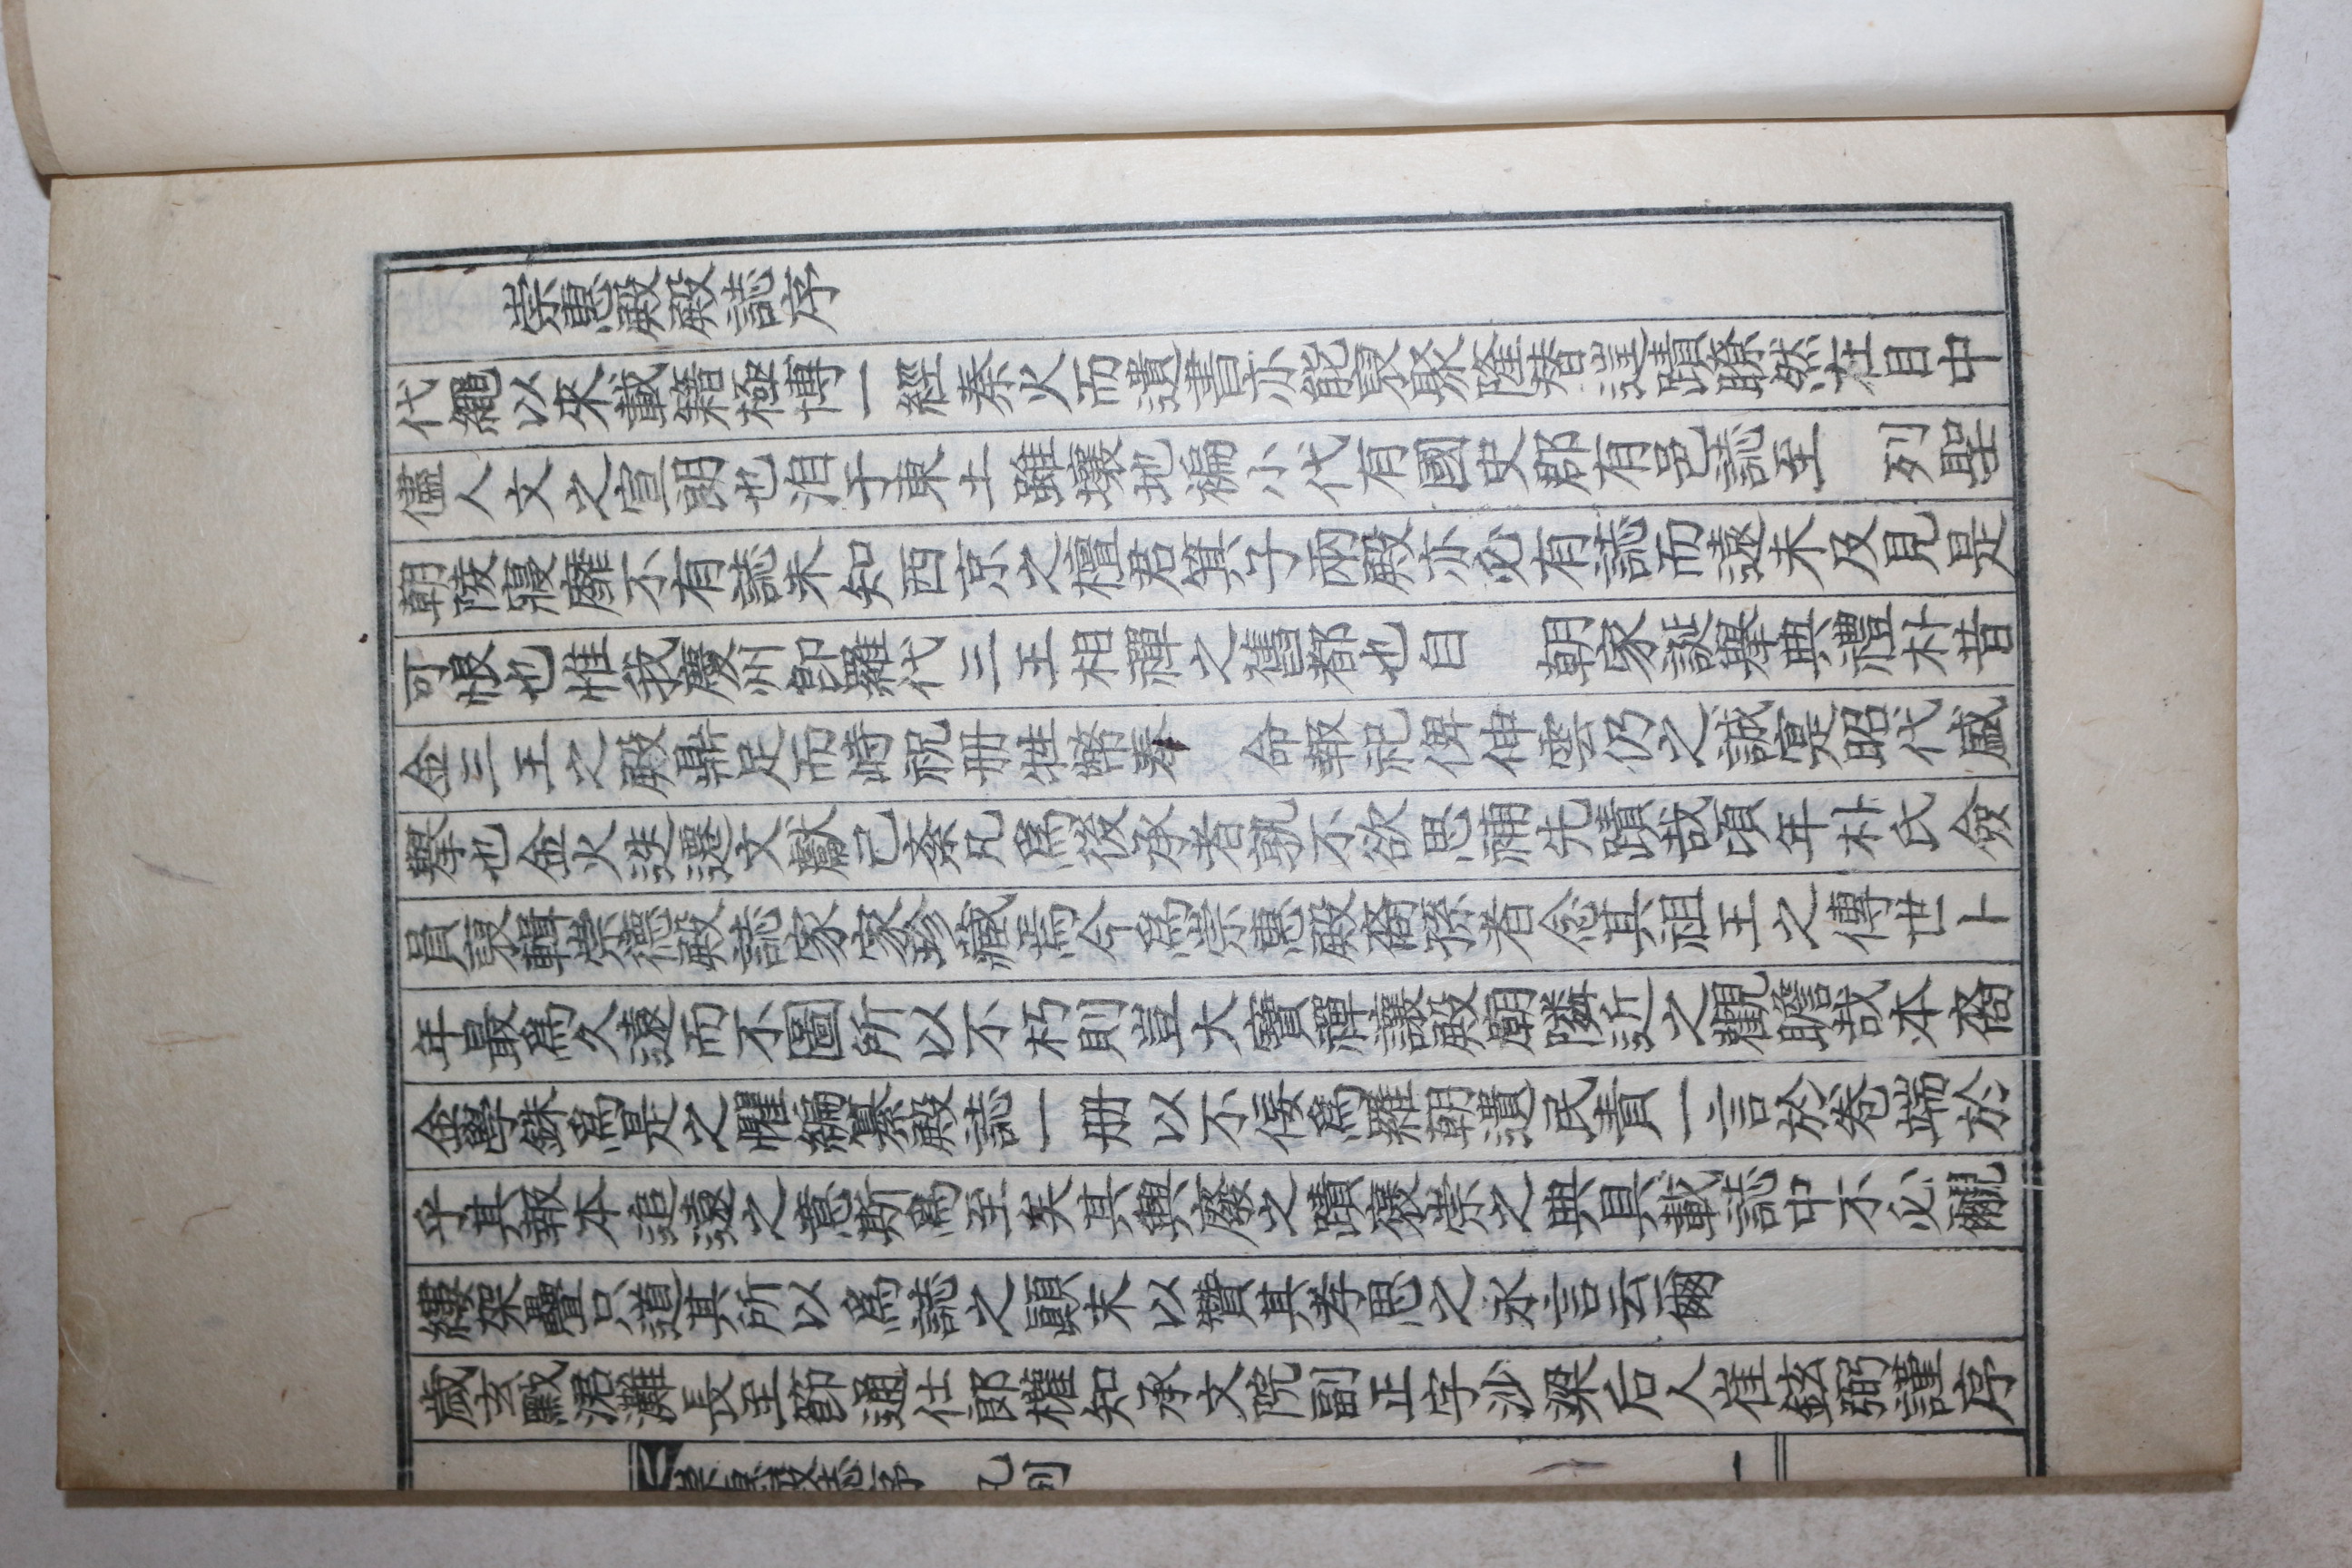 崇惠殿殿誌序
代繩以來載籍極博一經秦火而遺書亦能裒聚隆替蹟瞭然在目中
儘人文之宣朗也洎于東土雖壤地褊小代有國史郡有邑誌至 列聖
朝陵寢靡不有誌未知西京之檀君箕子兩殿亦必有誌而遂未及見是
可恨也惟我慶州卽羅代三王相禪之舊都也自 朝家誕擧典禮朴昔
金三王之殿鼎足而峙祝冊牲幣奉 命報祀俾伸雲仍之誠寔昭代盛
擧也金火迭遷文獻已爲後承者孰不欲思補先蹟哉頃年朴氏僉
員裒輯崇德殿誌家家珍藏焉今爲崇惠殿裔孫者念其祖王之傳世卜
年最爲久遠而不圖所以不朽則豈大寶禪讓殿廟隣近之觀瞻哉本裔
金學銖爲是之懼編纂殿誌一冊以不佞爲羅朝遺民責一言於卷端於
乎其報本追遠之意斯爲至矣其興廢之蹟褒崇之典具載誌中不必覼
縷架疊只道其所以爲誌之顚末以贊其孝思之永言云爾
歲玄黓涒灘長至節通仕郎權知承文院副正字沙梁后人崔鉉弼謹序
崇惠殿誌序 凡例 一